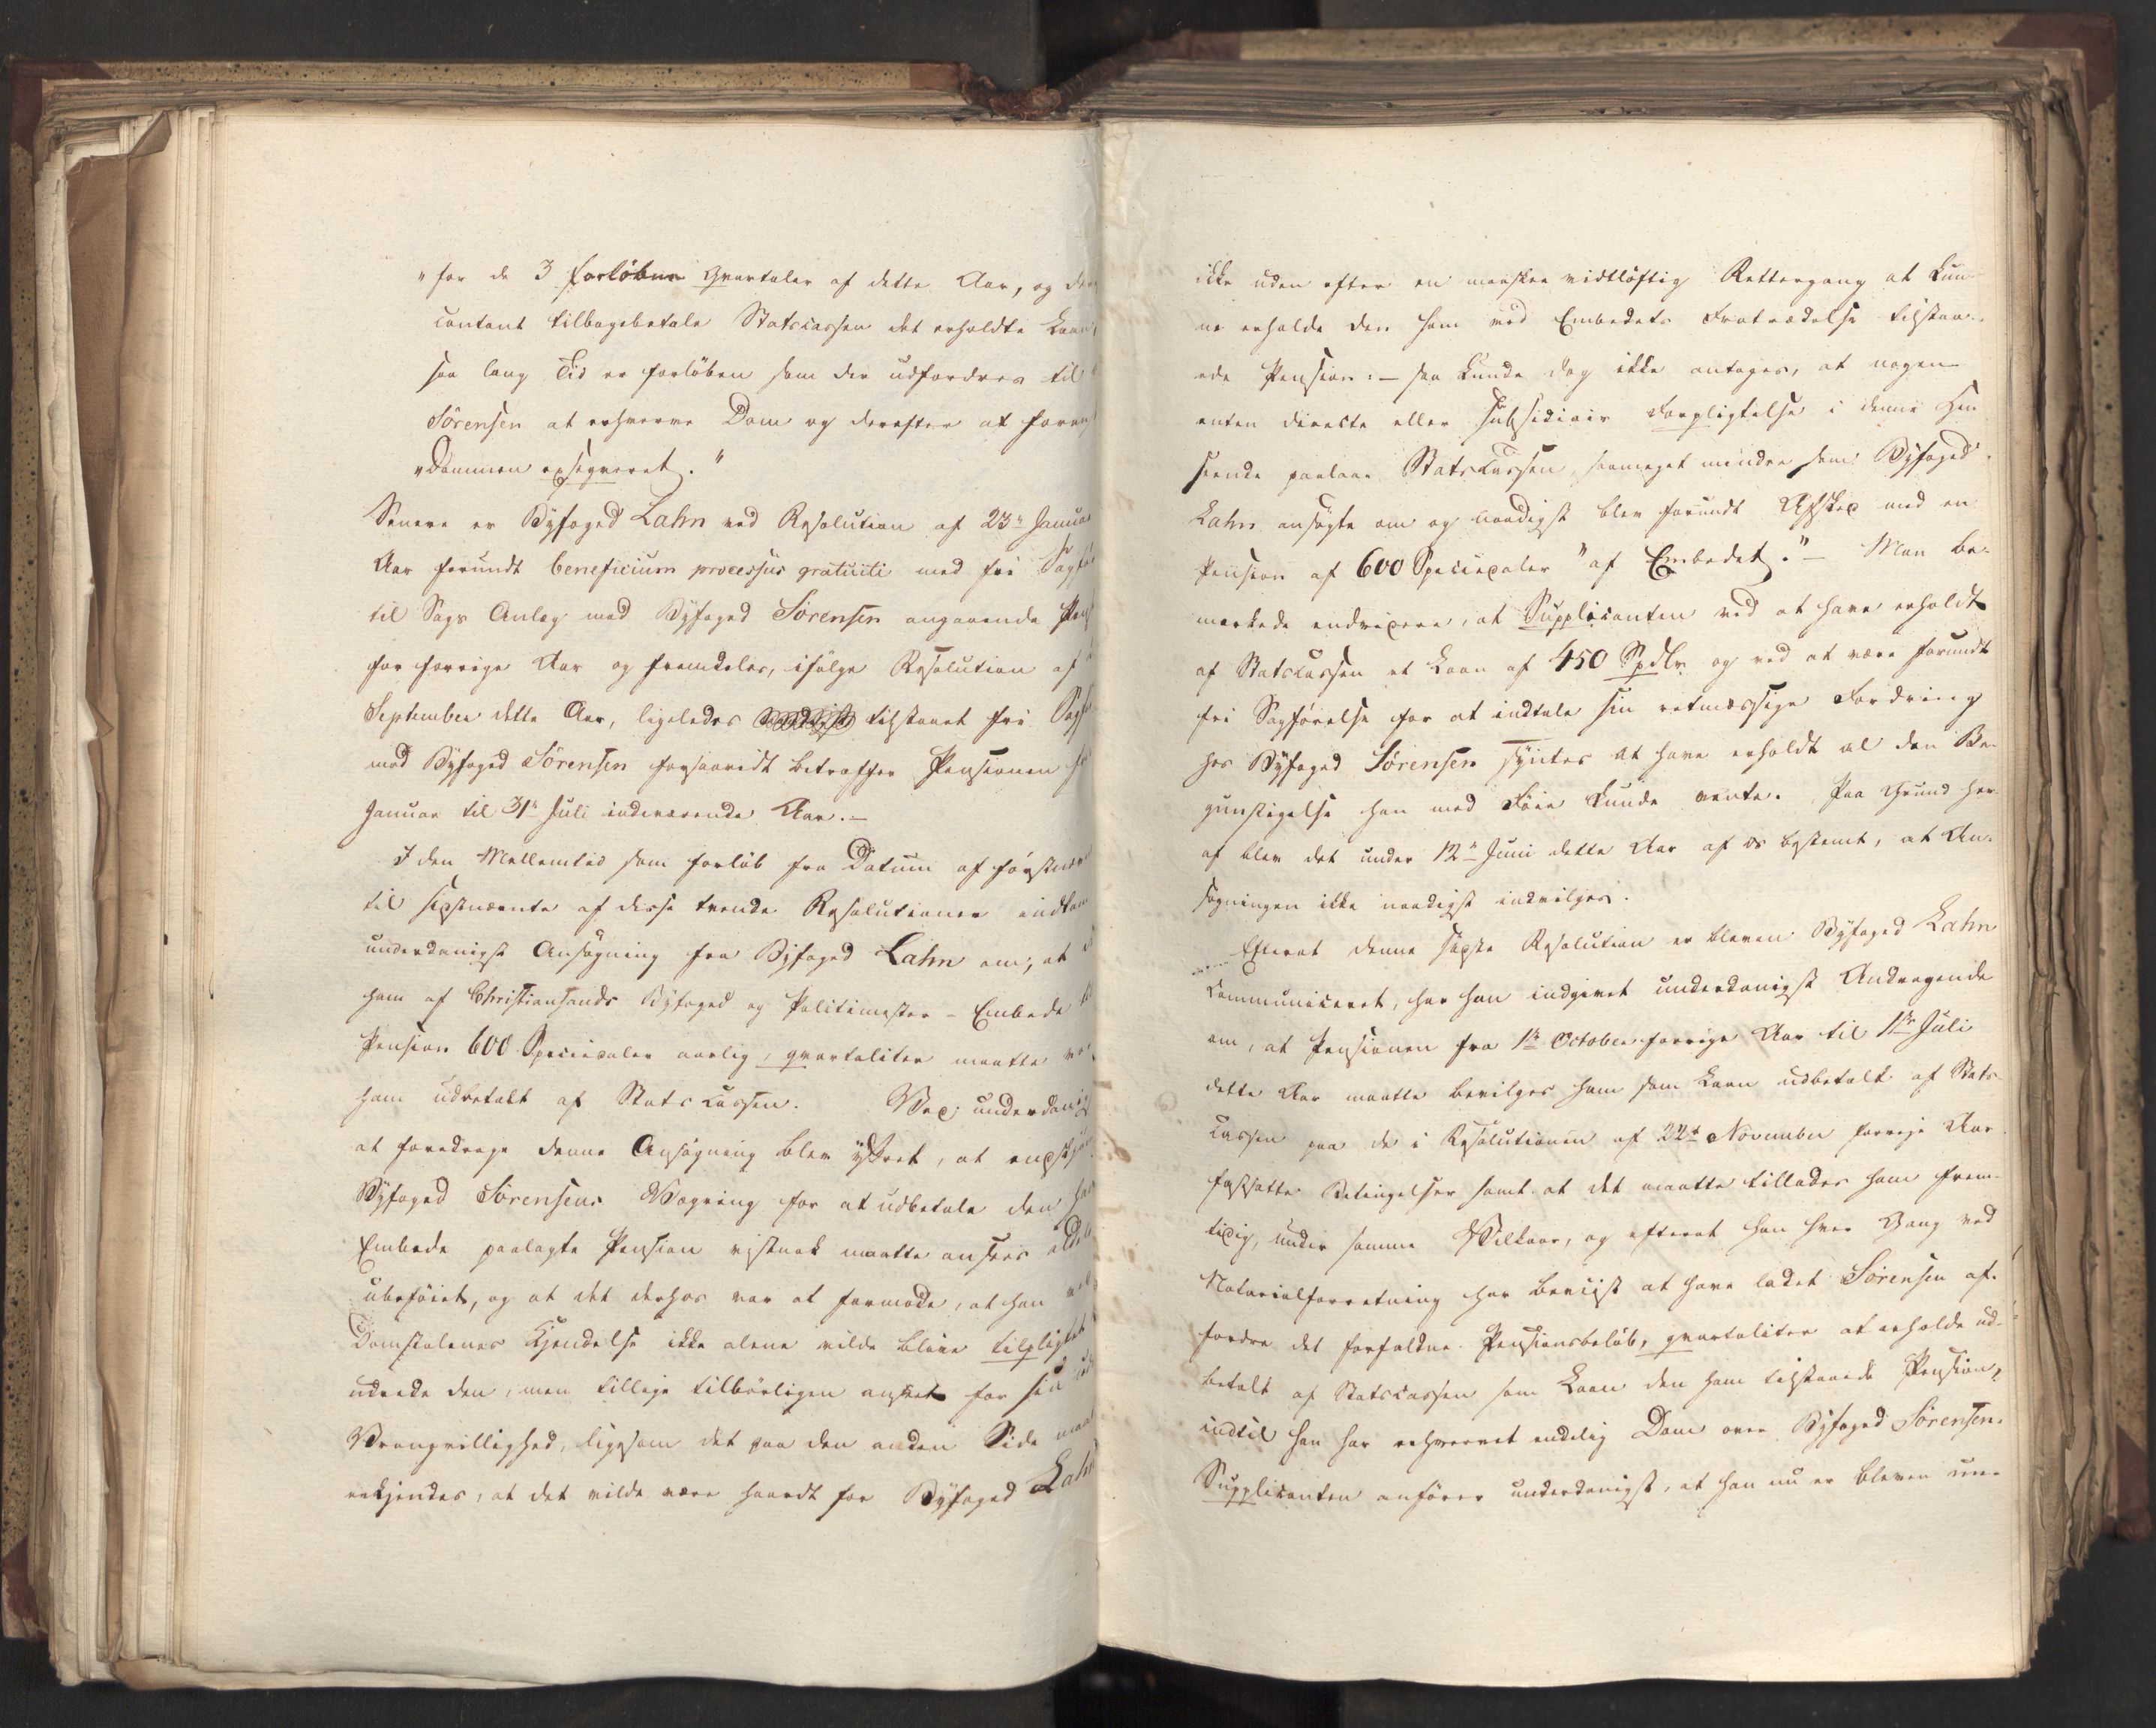 "for de 3 forløbne Qvartaler af dette Aar, og
contant tilbagebetale Statscassen det erholdte Laan
saa lang Tid er forløben som der udfordres til
Sørensen at erhverve Dom og derefter at
"Dommen exseqveret."
Senere er Byfoged Lahn ved Resolution af 23de Januar
Aar forundt beneficium processus gratuiti med fri
til Sags Anlæg mod Byfoged Sørensen angaaende
for forrige Aar og fremdeles, ifølge Resolution af
September dette Aar, ligeledes tilstaaet fri
mod Byfoged Sørensen forsaavidt betræffer Pensionen
Januar til 31te Juli indeværende Aar.-
I den Mellemtid som forløb fra Datum af
til sidstnævnte af disse tvende Resolutioner indkom
underdanigst Ansøgning fra Byfoged Lahn om, at
ham af Christiansands Byfoged og Politimester-Embede
Pension 600 Speciedaler aarlig, qvartaliter maatte
ham udbetalt af Statscassen. Ved underdanigst
at foredrage denne Ansøgning blev yttret, at endskjøndt
Byfoged Sørensens Vægring for at udbetale den
Embede paalagte Pension vistnok maatte ansees
ubeføiet, og at det derhos var at formode, at han ved
Domstolenes Kjendelse ikke alene vilde blive tilpligtet
udrede den, men tillige tilbørligen anseet for sin
Vrangvillighed, ligesom det paa den anden Side
erkjendes, at det vilde være haardt for Byfoged Lahn
ikke uden efter en maaskee vidtløftig Rettergang at kun-
ne erholde den ham ved Embedets Fratrædelse tilstaa-
ede Pension:- saa kunde dog ikke antages, at nogen
enten directe eller subsidiair Forpligtelse i denne Hen
seende paalaae Statscassen, saameget mindre som Byfoged
Lahn ansøgte om og naadigst blev forundt Afsked med en
Pension af 600 Speciedaler "af Embedet."- Man be-
mærkede endvidere, at Supplicanten ved at have erholdt
af Statscassen et Laan af 450 Spdlr og ved at være forundt
fri Sagførelse for at indtale sin retmæssige Fordring
hos Byfoged Sørensen syntes at have erholdt al den Be-
gunstigelse han med Føie kunde vente. Paa Grund her-
af blev det under 12te Juni dette Aar af os bestemt, at An-
søgningen ikke naadigst indvilges.
Efterat denne sidste Resolution er bleven Byfoged Lahn
communiceret, har han indgivet underdanigst Andragende
om, at Pensionen fra 1te October forrige Aar til 1ste Juli
dette Aar maatte bevilges ham som Laan udbetalt af Stats-
cassen paa de i Resolutionen af 22de November forrige Aar
fastsatte Betingelser samt at det maatte tillades ham frem-
tidig, under samme Vilkaar, og efterat han hver Gang ved
Notarialforretning har beviist at have ladet Sørensen af-
fordre det forfaldne Pensionsbeløb, qvartaliter at erholde ud-
betalt af Statscassen som Laan den ham tilstaaede Pension,
indtil han har erhvervet endelig Dom over Byfoged Sørensen.
Supplicanten anfører underdanigst, at han nu er bleven